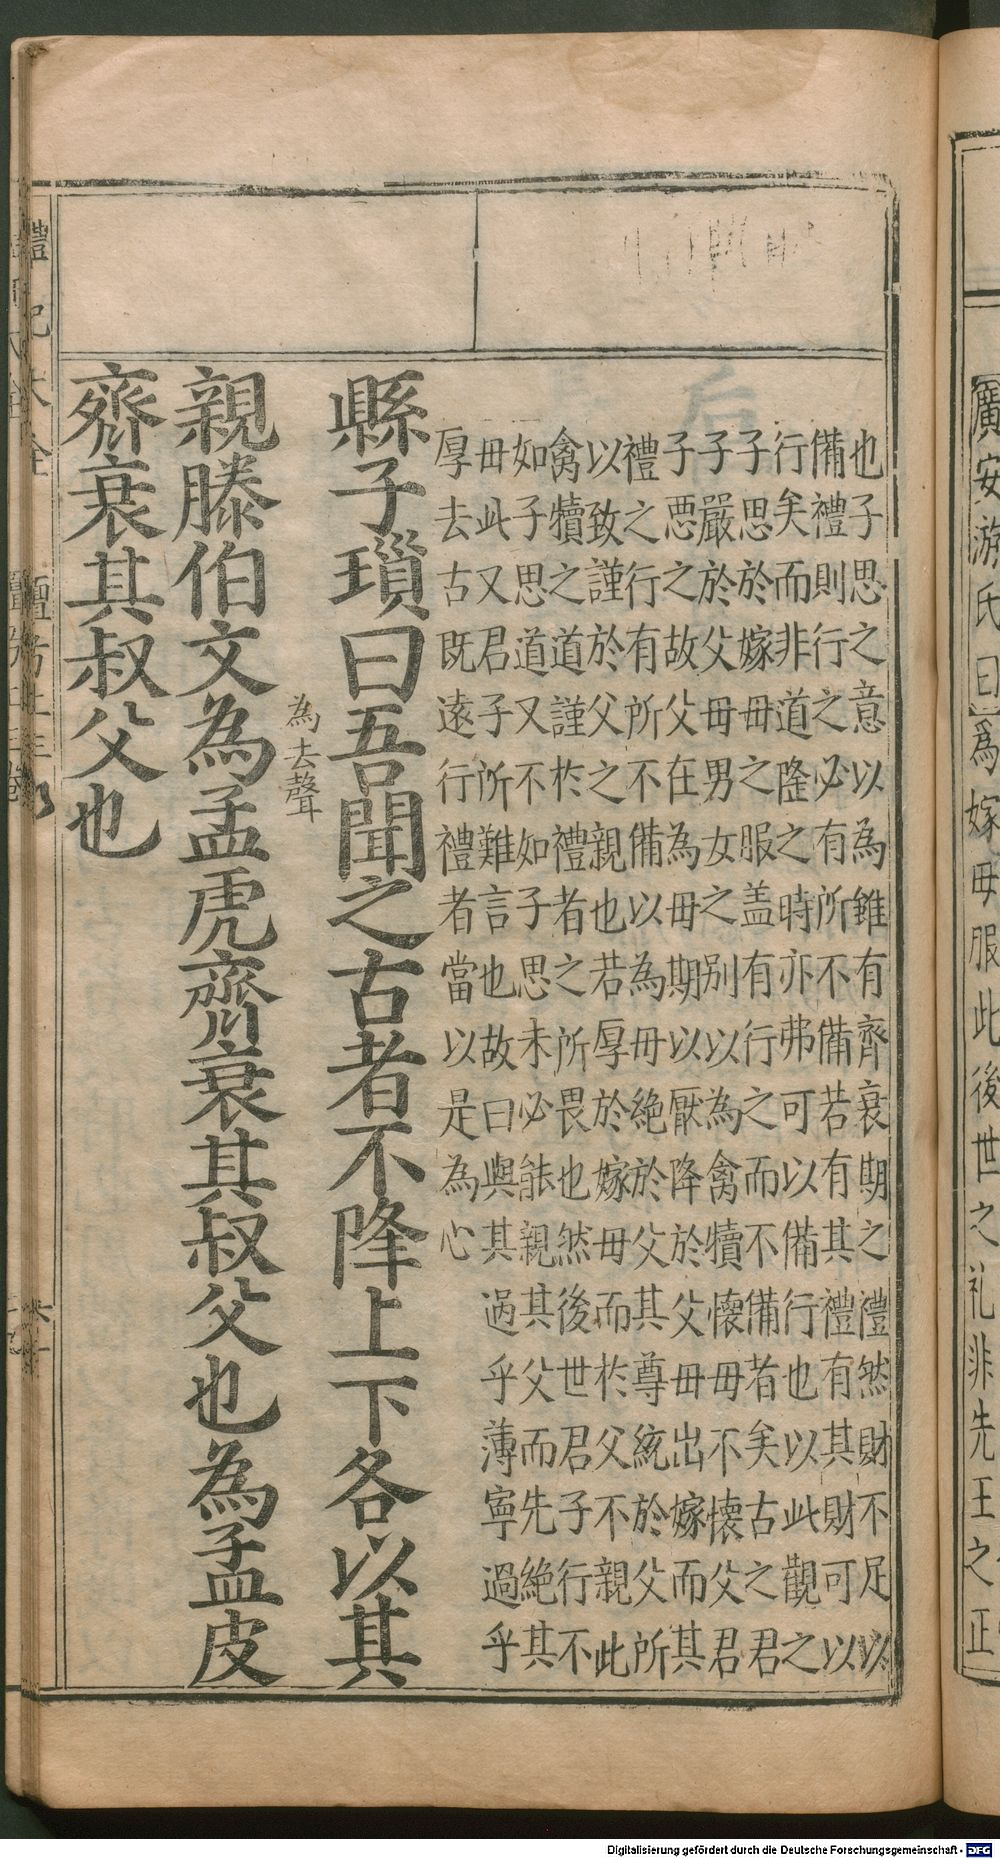 【廣安游氏曰】爲嫁毋服此後世之礼非先王之正
也子思之意以為雖有齊衰期之禮然財不足以
備禮則行之必有所不備若有其禮有其財可以
行矣而非道隆之時亦弗可以備行也以此觀之
子思於嫁毋之服盖有行之而不備者矣古之君
子嚴於父毋男女之别以為禽犢懷毋不懷父君
子惡之故父在為毋期以厭降於父毋出嫁而其
禮之行有所不備以為毋絶於父其尊統於父所
以致謹於父之親也若厚於嫁毋而於父不親此
禽犢之道謹於禮者之所畏也然後世君子行不
如子思道又不如子思未必能親其父而先絶其
毋此又君子所難言也故曰與其過乎薄寧過乎
厚去古既遠行禮者當以是為心
縣子瑣曰吾聞之古者不降上下各以其
為去聲
親滕伯文為孟虎齊衰其叔父也為孟皮
齊衰其叔父也
Digitalisierung gefördert durch die Deutsche Forschungsgemeinschaft - DFG